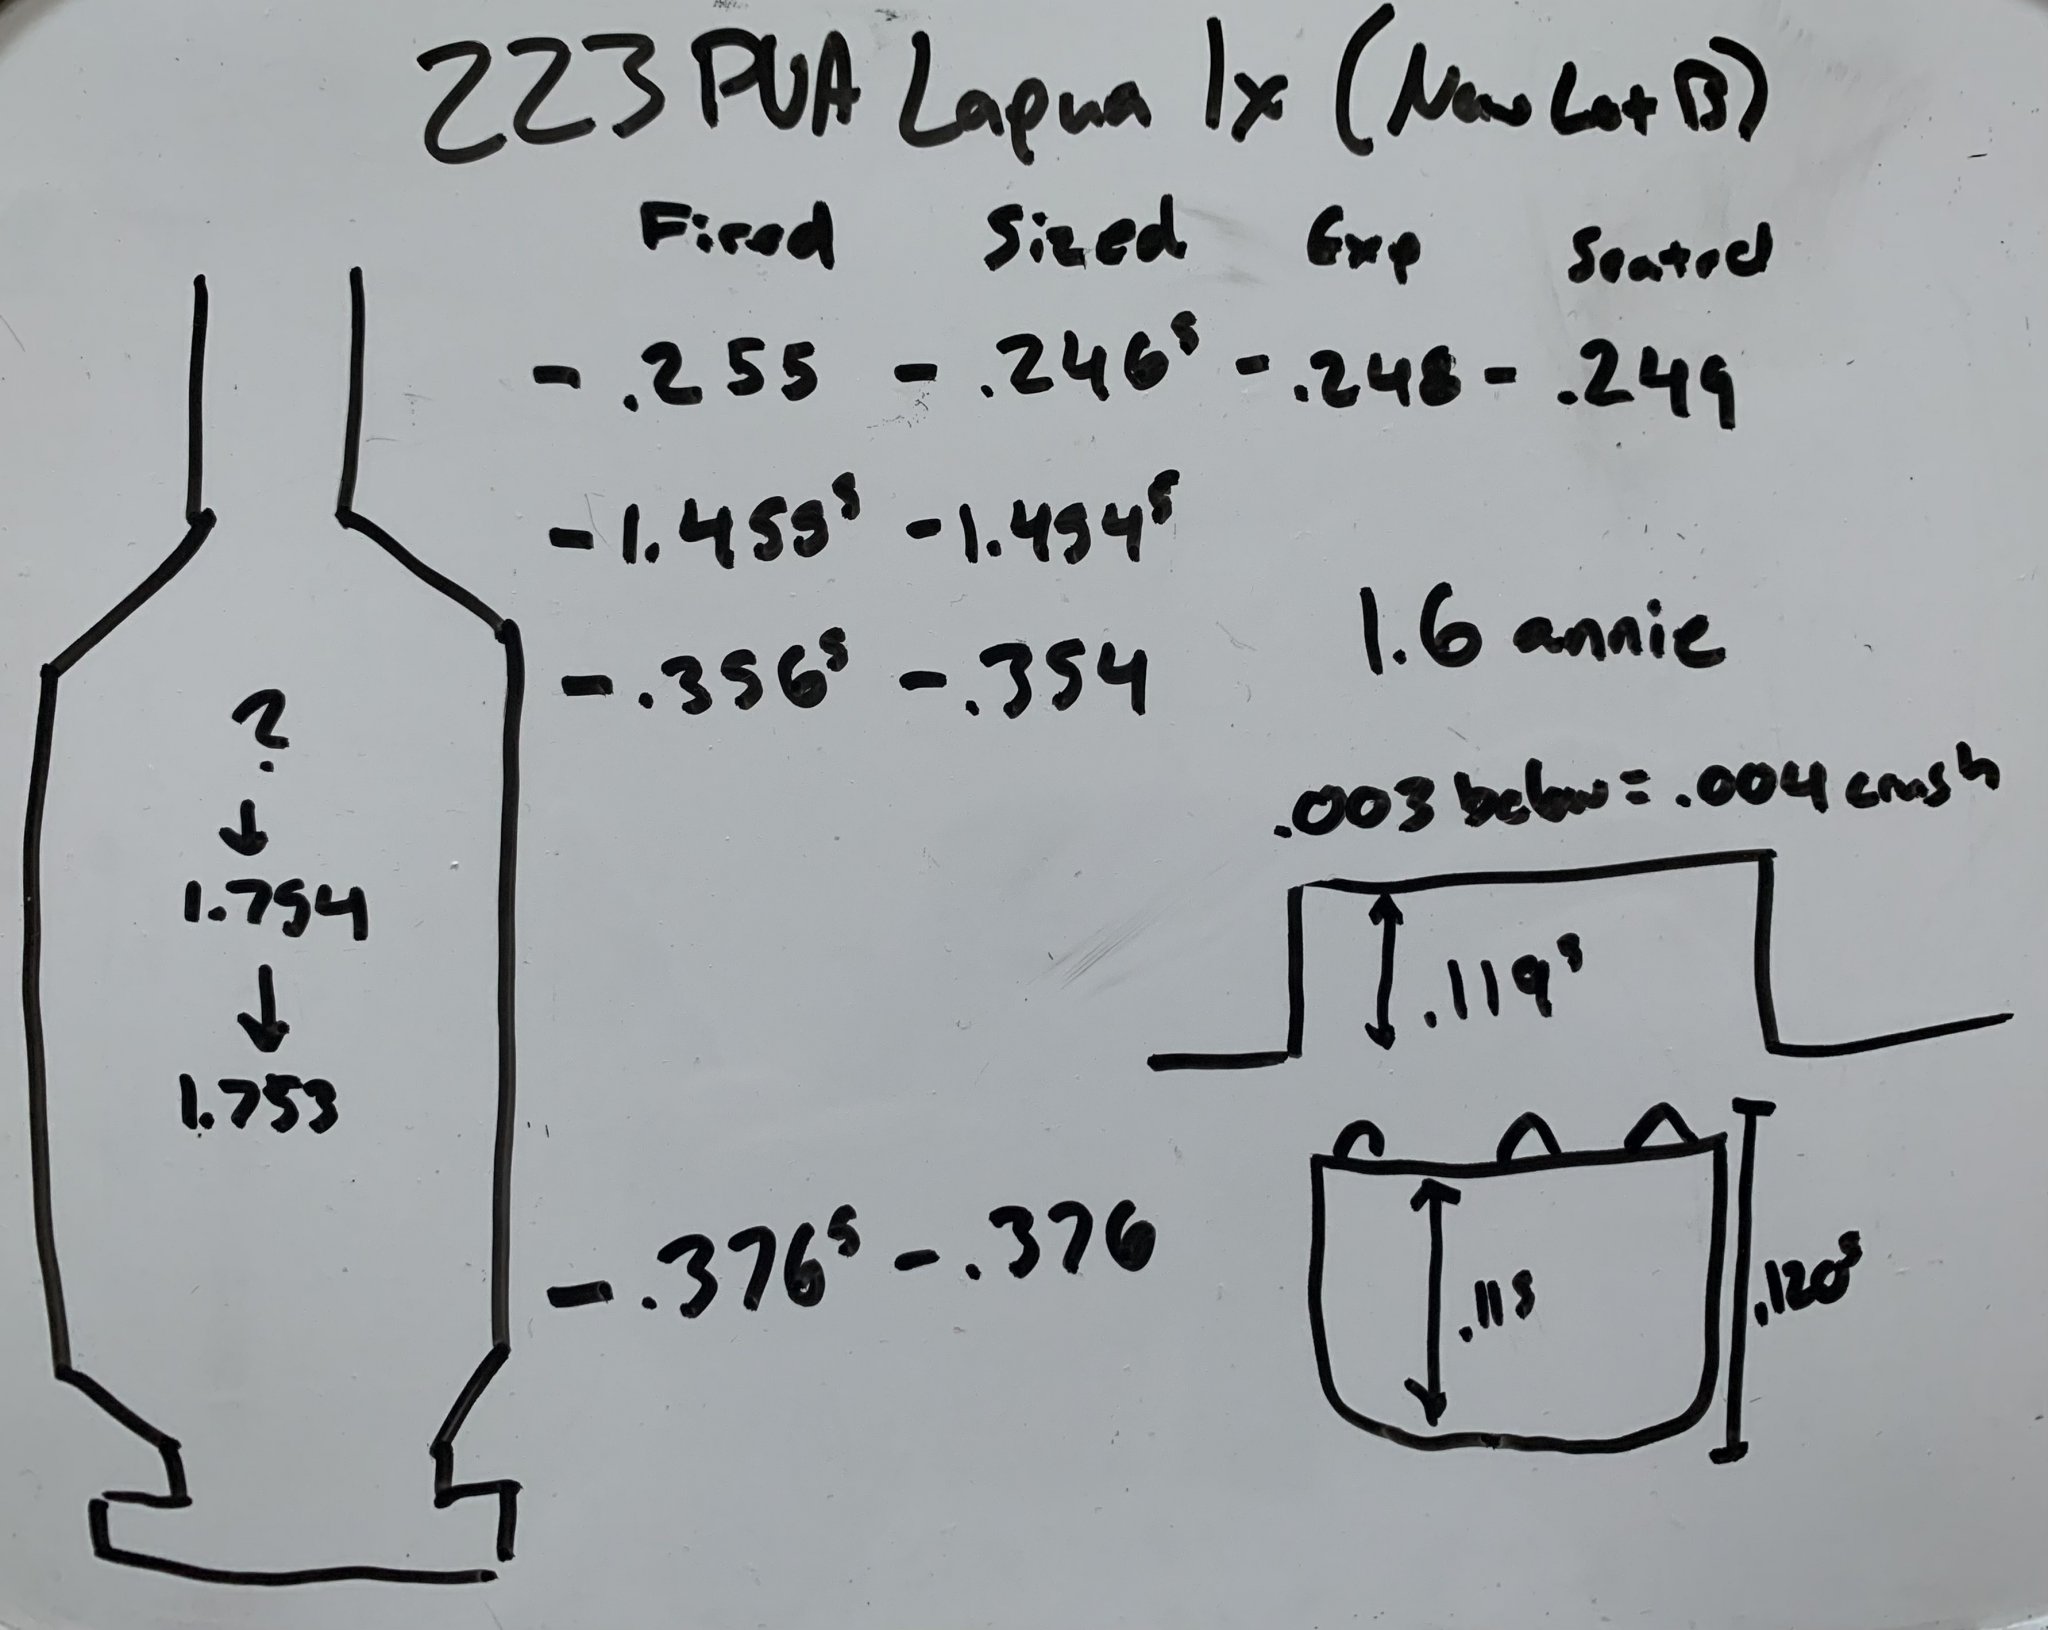 223 PVA Lapua 1x (New Lot B)
Fired Sized Exp Seated
- .255 - .246⁵ - .248 - .249
- 1.455⁵ - 1.454⁵
- .356⁵ - .354
1.6 annie
?
.003 below = .004 crush
1.754
.119⁵
1.753
- .376⁵ - .376
.115
.120⁵